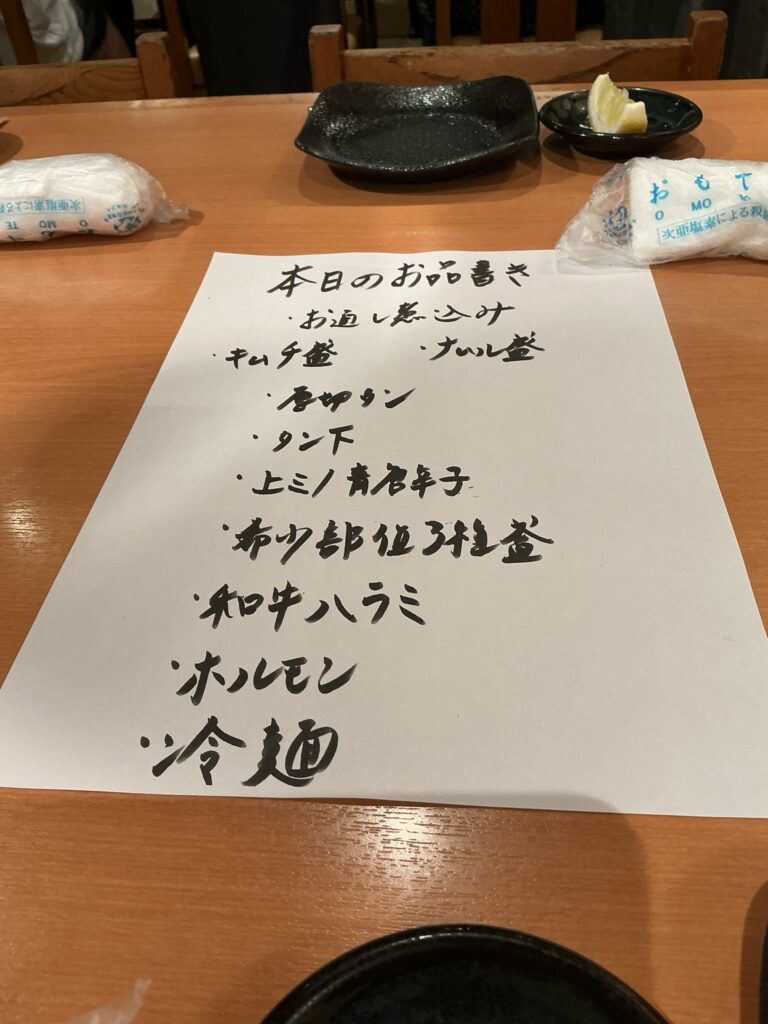 おもて
OMO
次亜塩素による殺
次亜塩素による殺
本日のお品書き
・お通し煮込み
・キムチ盛 ・ナムル盛
・厚切タン
・タン下
・上ミノ青唐辛子
・希少部位3種盛
・和牛ハラミ
・ホルモン
・冷麺